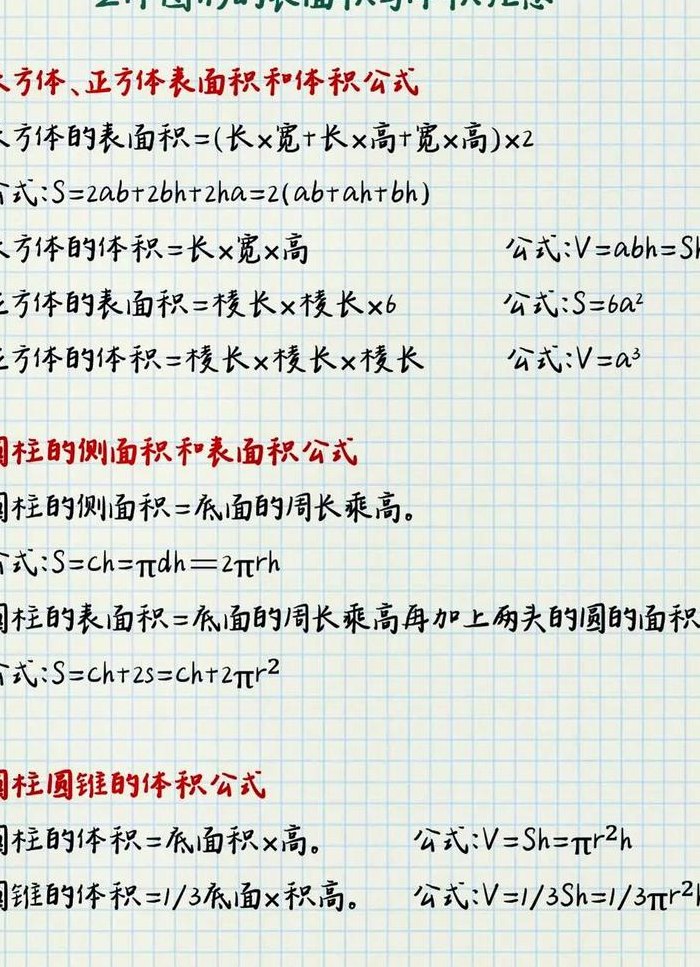 方体、正方体表面积和体积公式
方体的表面积=(长×宽+长×高+宽×高)×2
公式:S=2ab+2bh+2ha=2(ab+ah+bh)
方体的体积=长×宽×高 公式:V=abh=Sh
正方体的表面积=棱长×棱长×6 公式:S=6a²
正方体的体积=棱长×棱长×棱长 公式:V=a³
圆柱的侧面积和表面积公式
圆柱的侧面积=底面的周长乘高。
公式:S=ch=πdh=2πrh
圆柱的表面积=底面的周长乘高再加上两头的圆的面积
公式:S=ch+2s=ch+2πr²
圆柱圆锥的体积公式
圆柱的体积=底面积×高。 公式:V=Sh=πr²h
圆锥的体积=1/3底面×积高。 公式:V=1/3Sh=1/3πr²h